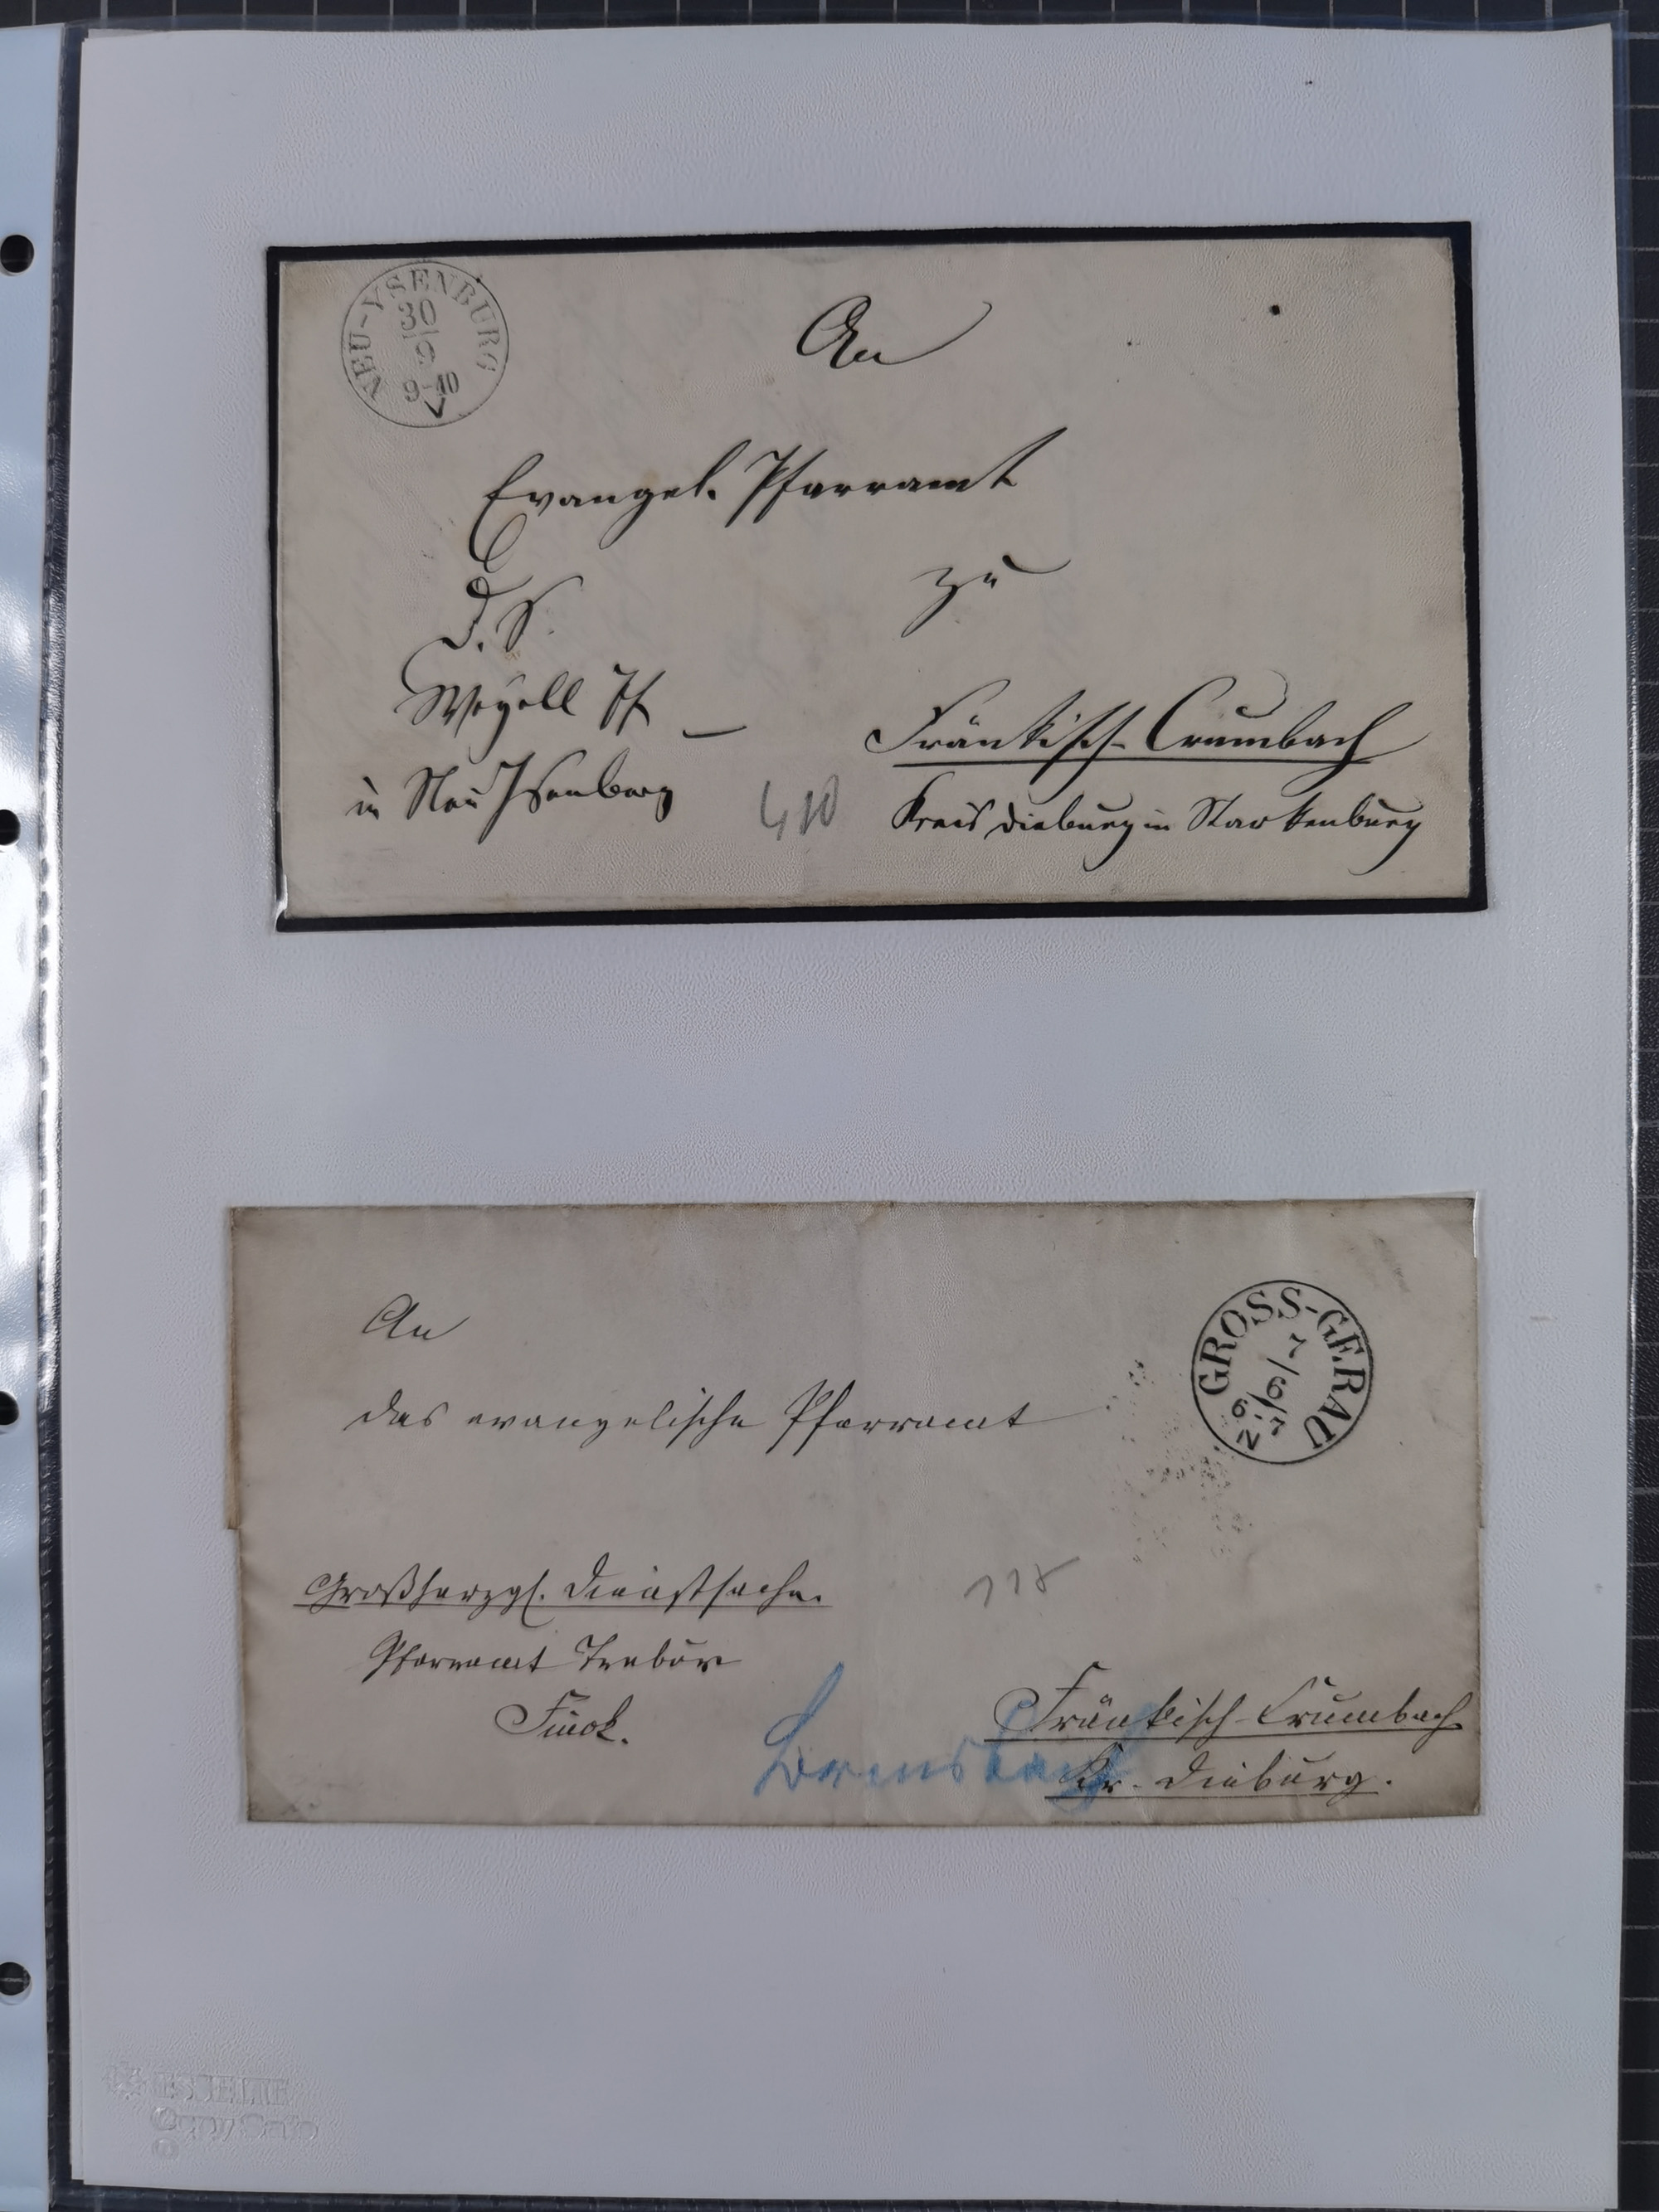 NEU-YSENBURG
30
9
9-10
V
An
Evangel. Pfarramt
zu
D. S.
Weyell Pf
in Neu Isenburg
Fränkisch-Crumbach
Kreis Dieburg in Starkenburg
GROSS-GERAU
7/6/7
6-7
N
An
das evangelische Pfarramt
Großherzgl. Dienstsache.
Pfarramt Trebur
Finck.
118
Fränkisch-Crumbach
Kr. Dieburg.
ESSELTE
Copy Safe